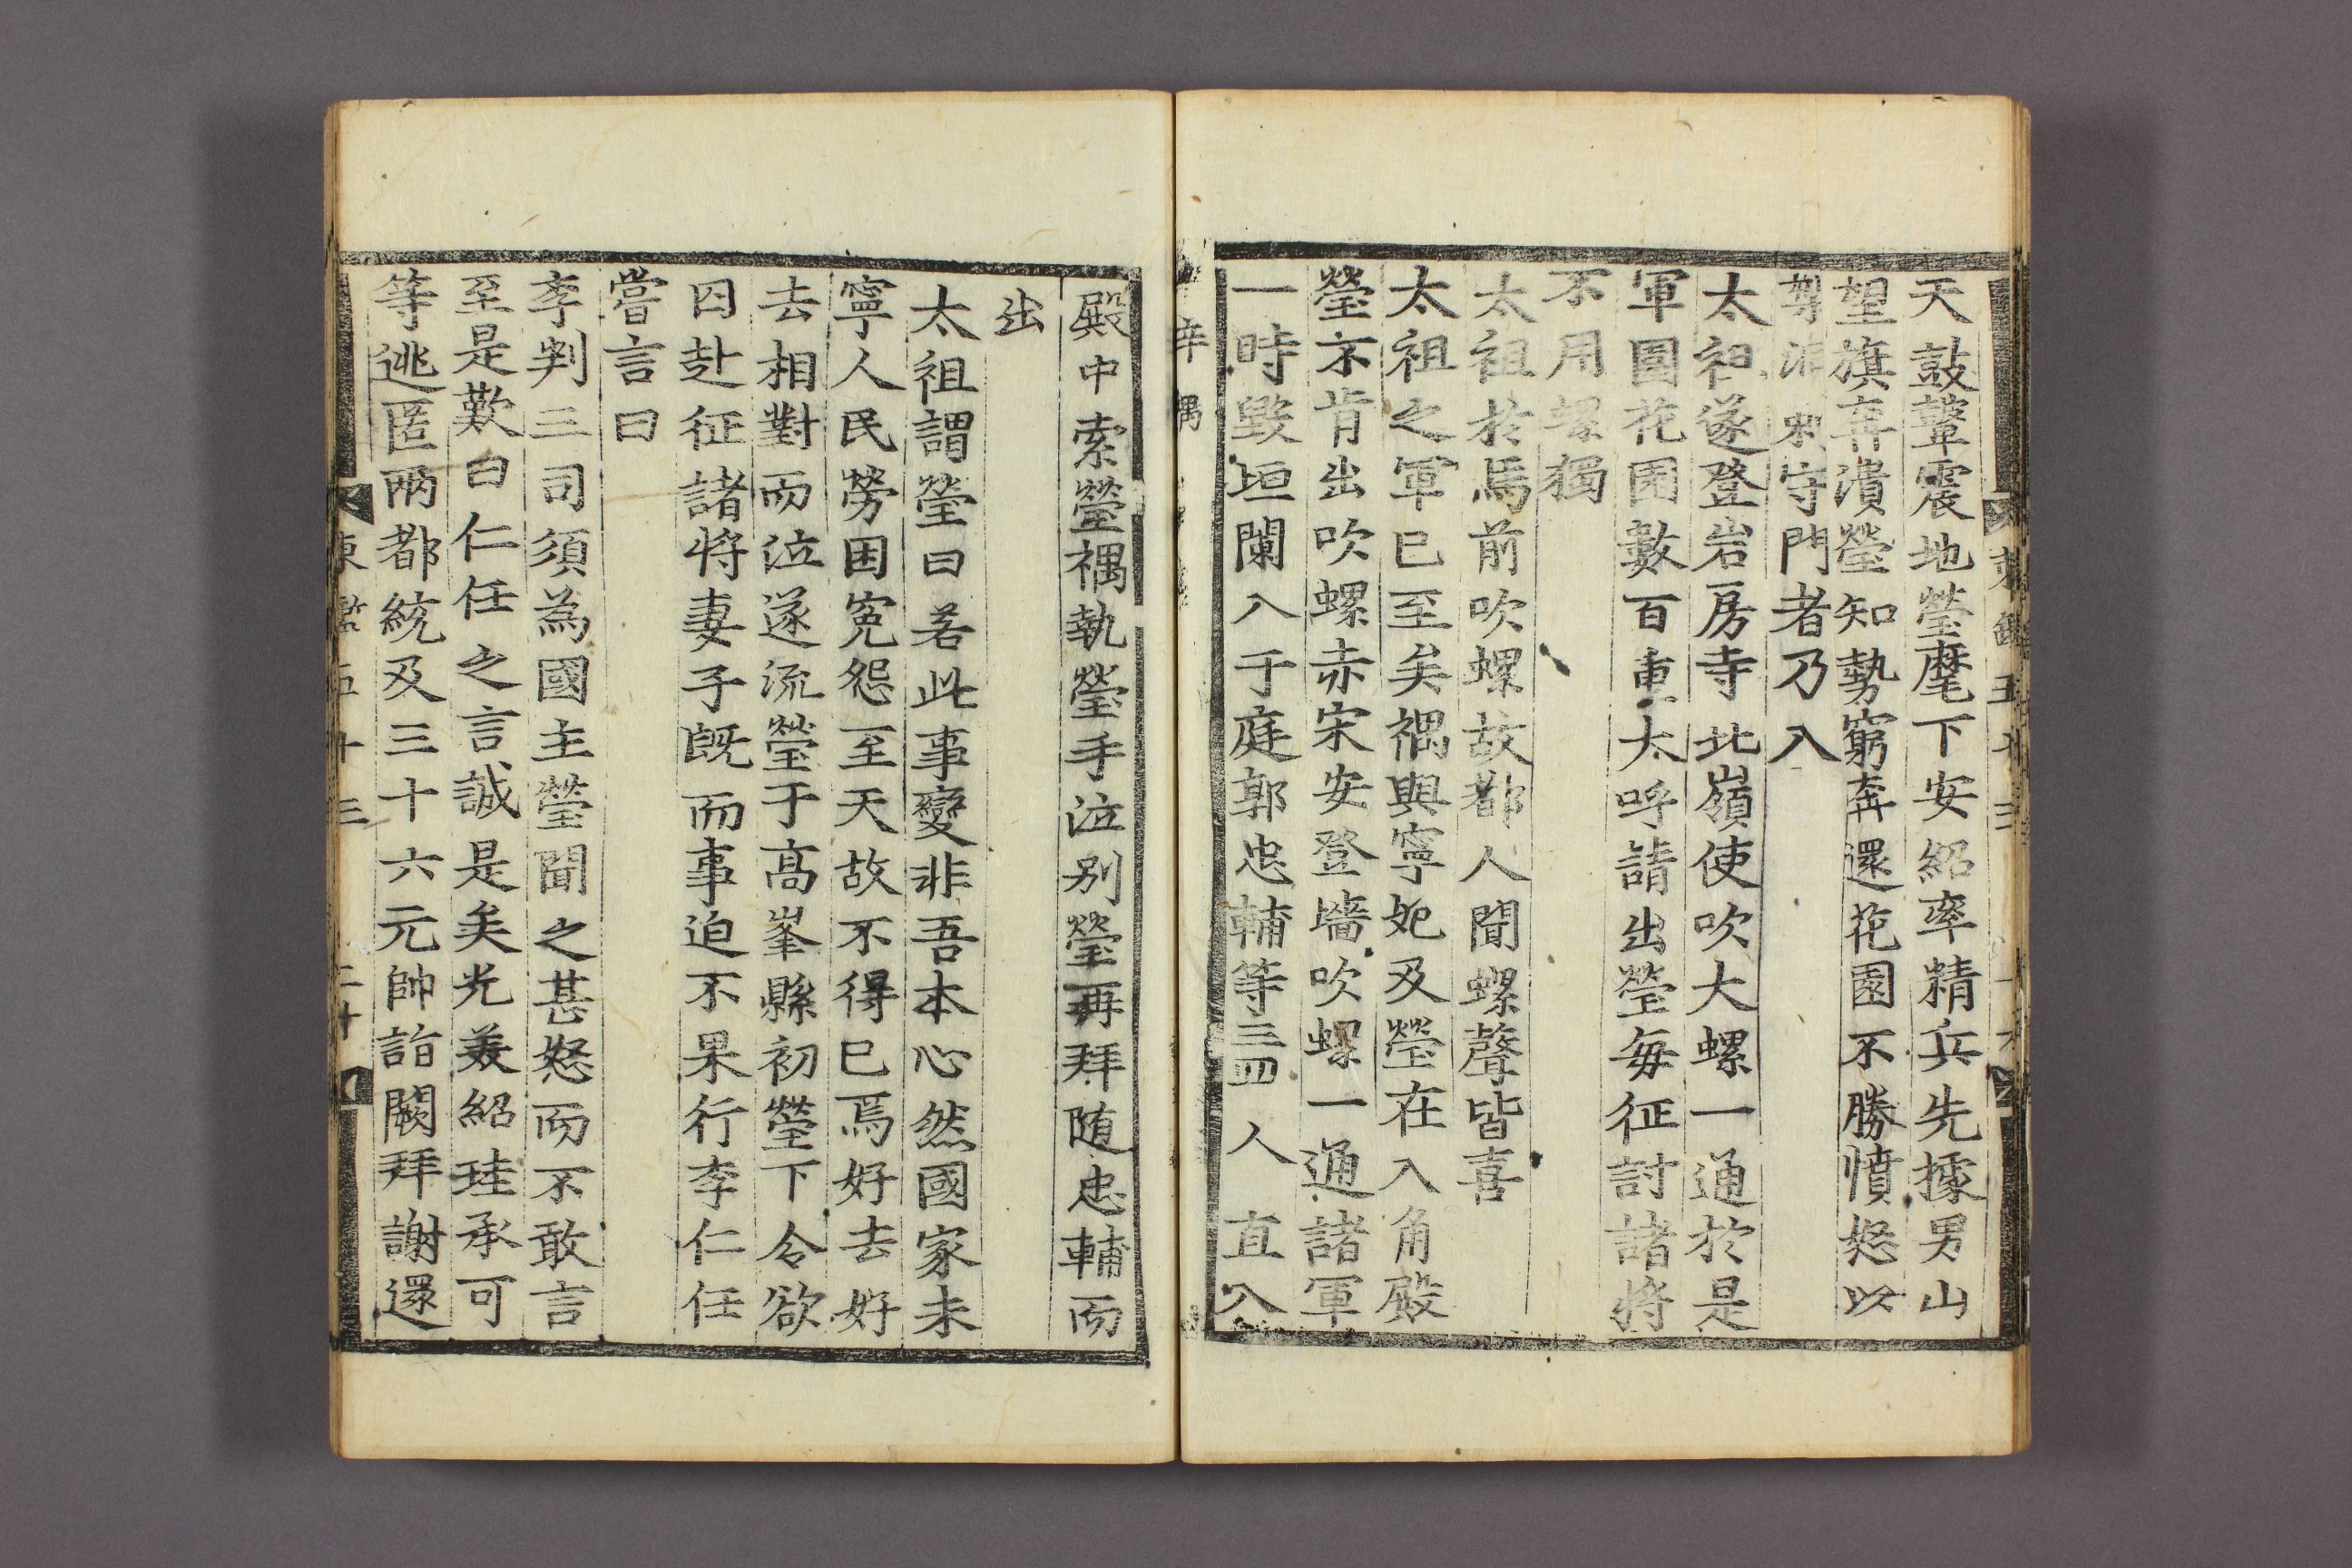 天鼓鼙震地瑩麾下安紹率精兵先據男山
望旗奔潰瑩知勢窮奔還花園不勝憤怒以
刺守門者乃入
太祖遂登岩房寺北嶺使吹大螺一通於是
軍圍花園數百重大呼請出瑩每征討諸將
不用螺獨
太祖於馬前吹螺故都人聞螺聲皆喜
太祖之軍已至矣禑與寧妃及瑩在八角殿
瑩不肯出吹螺赤宋安登墻吹螺一通諸軍
一時毀垣闌入于庭郭忠輔等三四人直入
辛禑
殿中索瑩禑執瑩手泣别瑩再拜随忠輔而
出
太祖謂瑩曰若此事變非吾本心然國家未
寧人民勞困寃怨至天故不得已焉好去好
去相對而泣遂流瑩于高峯縣初瑩下令欲
囚赴征諸將妻子旣而事迫不果行李仁任
嘗言曰
李判三司須為國主瑩聞之甚怒而不敢言
至是歎曰仁任之言誠是矣光美紹珪承可
等逃匿兩都統及三十六元帥詣闕拜謝還
東鑑五十三 二十